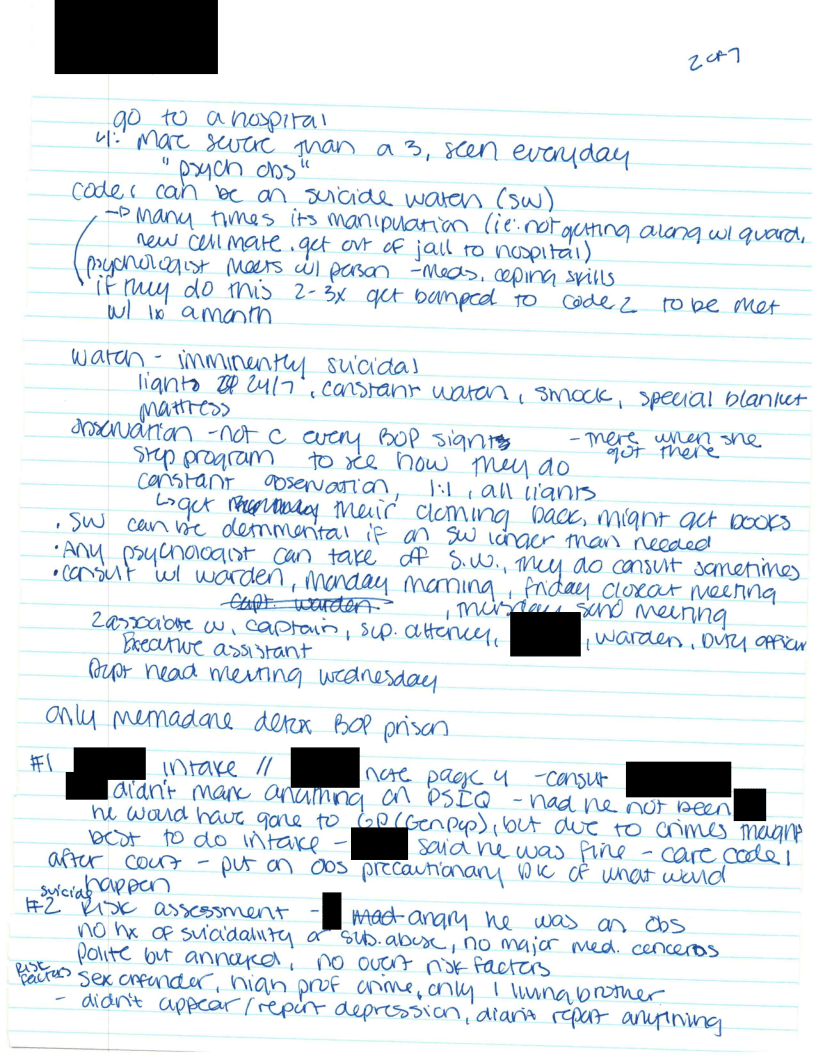 2 of 7
go to a hospital
4: More severe than a 3, seen everyday
"psych obs"
code 1 can be on suicide watch (SW)
→ Many times its manipulation (ie: not getting along w/ guard,
new cellmate, get out of jail to hospital)
psychologist meets w/ person - meds, coping skills
if they do this 2-3x get bumped to code 2 to be met
w/ 1x a month
watch - imminently suicidal
lights 24/7, constant watch, smock, special blanket
mattress
observation - not c every BOP sights - there when she
got there
step program to see how they do
constant observation, 1:1, all lights
↳ get their clothing back, might get books
• SW can be detrimental if on SW longer than needed
• Any psychologist can take off S.W., they do consult sometimes
• consult w/ warden, Monday morning, Friday closeout meeting
Capt. warden , Thursday SHU meeting
2 associate w, captain, sup. attorney, , warden, Duty officer
Executive assistant
Dept head meeting wednesday
only methadone detox BOP prison
#1 intake // note page 4 - consult
didn't mark anything on PSIQ - had he not been
he would have gone to GP (GenPop), but due to crimes thought
best to do intake - said he was fine - care code 1
after court - put on obs precautionary b/c of what would
happen
#2 suicide Risk assessment - mad angry he was on obs
no hx of suicidality or sub. abuse, no major med. concerns
Polite but annoyed, no overt risk factors
Risk factors sex offender, high prof crime, only 1 living brother
- didn't appear/report depression, didn't report anything